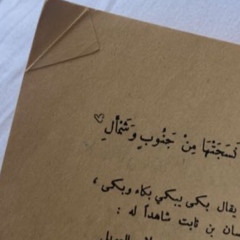 نَسَجَتْهَا مِنْ جَنُوبٍ وَشَمْأَلِ
يقال بكى يبكي بكاء وبكى ،
سان بن ثابت شاهداً له :